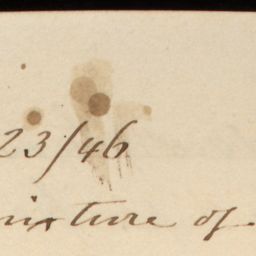 23/46
mixture of